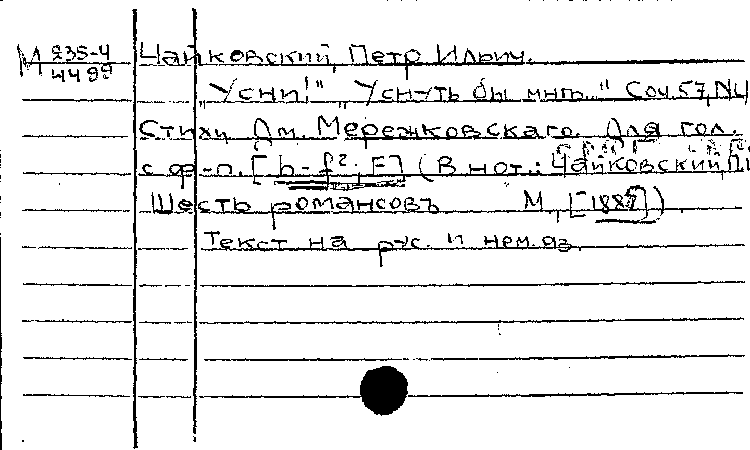 М 235-4
4499
Чайковский, Петр Ильич.
„Усни!" „Уснуть бы мнѣ.." Соч.57,N4
Стихи Дм. Мережковскаго. Для гол.
с ф-п. [b-f²; F] (В нот.: Чайковский, П.
Шесть романсовъ М., [1887]).
Текст на рус. и нем. яз.